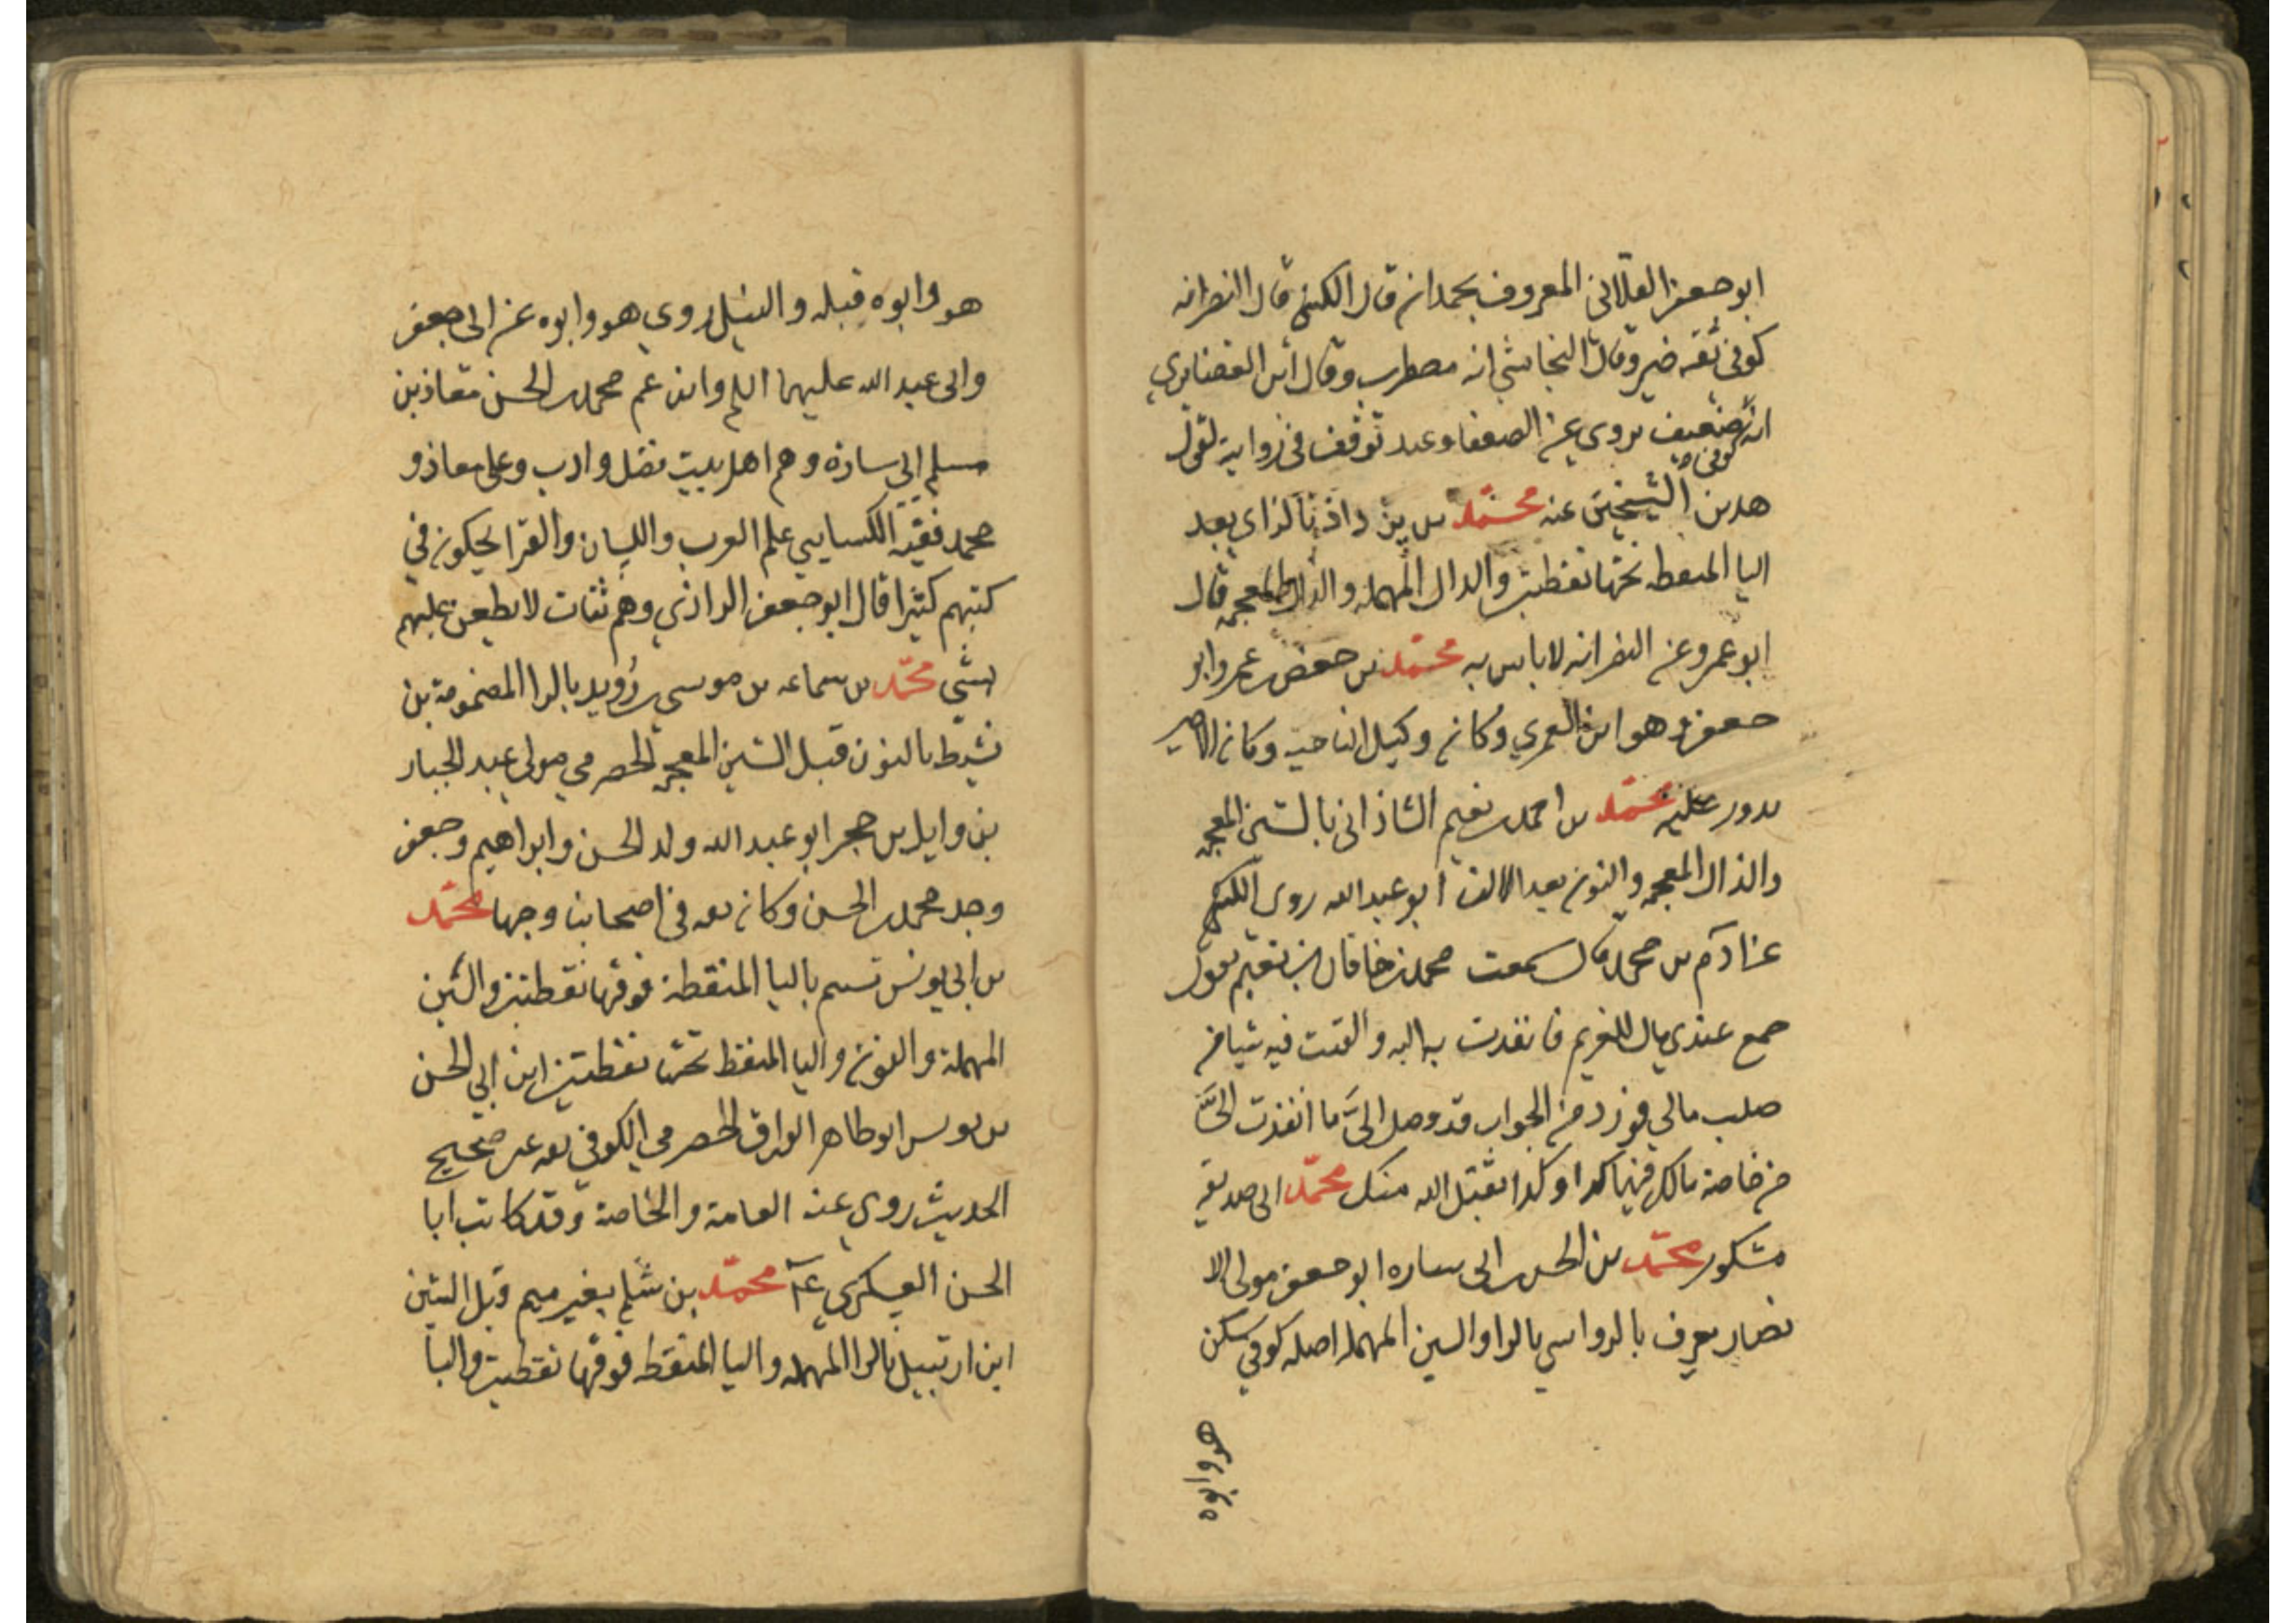 ابو جعفر القلانسي المعروف بحمدان قال الكشي قال النضر انه
كوفي ثقه خير وقال النجاشي انه مضطرب وقال ابن الغضايري
انه ضعيف يروى عن الضعفا وعندي توقف في روايته لقول
هذين الشيخين عنه محمد بن يزداذ بالزاي بعد
اليا المنقطه تحتها نقطتين والدال المهمله والذال المعجمه قال
ابو عمرو عن النضر انه لا باس به محمد بن حفص بن عمرو ابو
جعفر وهو ابن العمري وكان وكيل الناحيه وكان الامر
يدور عليه محمد بن احمد بن نعيم الشاذاني بالشين المعجمه
والذال المعجمه والنون بعد الالف ابو عبد الله روى الكشي
عن ادم بن محمد قال سمعت محمد بن شاذان بن نعيم يقول
جمع عندي مال للغريم فانفذت به اليه والقيت فيه شيا من
صلب مالي فورد من الجواب قد وصل الىَّ ما انفذت الىَّ
من خاصة مالك فيها كذا وكذا تقبل الله منك محمد ابى صديقه
مشكور محمد بن الحسن بن ابى ساره ابو جعفر مولى الا
نصار يعرف بالرواسي بالراو السين المهمله اصله كوفي سكن
هو وابوه
هو وابوه قبله والنيل روي هو وابوه عن ابى جعفر
وابى عبد الله عليهما السلم وابن عم محمد بن الحسن معاذ بن
مسلم ابي ساره وهم اهل بيت فضل وادب وعلى معاذ و
محمد فقيه الكسايي علم العرب واللسان والقرا يحكون في
كتبهم كثيرا قال ابو جعفر الرواسي وهم ثقات لا يطعن عليهم
بشي محمد بن سماعه بن موسي بن رُويد بالرا المضمومة بن
نشيط بالنون قبل الشين المعجمه الحضرمي مولى عبد الجبار
بن وايل بن حجر ابو عبد الله ولد الحسن وابراهيم وجعفر
وجد محمد بن الحسن وكان ثقه في اصحابنا وجها محمد
بن ابي يونس تسنيم باليا المنقطة فوقها نقطتين والسين
المهملة والنون واليا المنقط تحتها نقطتين ابن ابي الحسن
بن يونس ابو طاهر الوراق الحضرمي الكوفي ثقه عين صحيح
الحديث روي عنه العامة والخاصة وقد كاتب ابا
الحسن العسكري عم محمد بن سَلم بغير ميم قبل السين
ابن ارتبيل بالرا المهمله واليا المنقطه فوقها نقطتين والبا